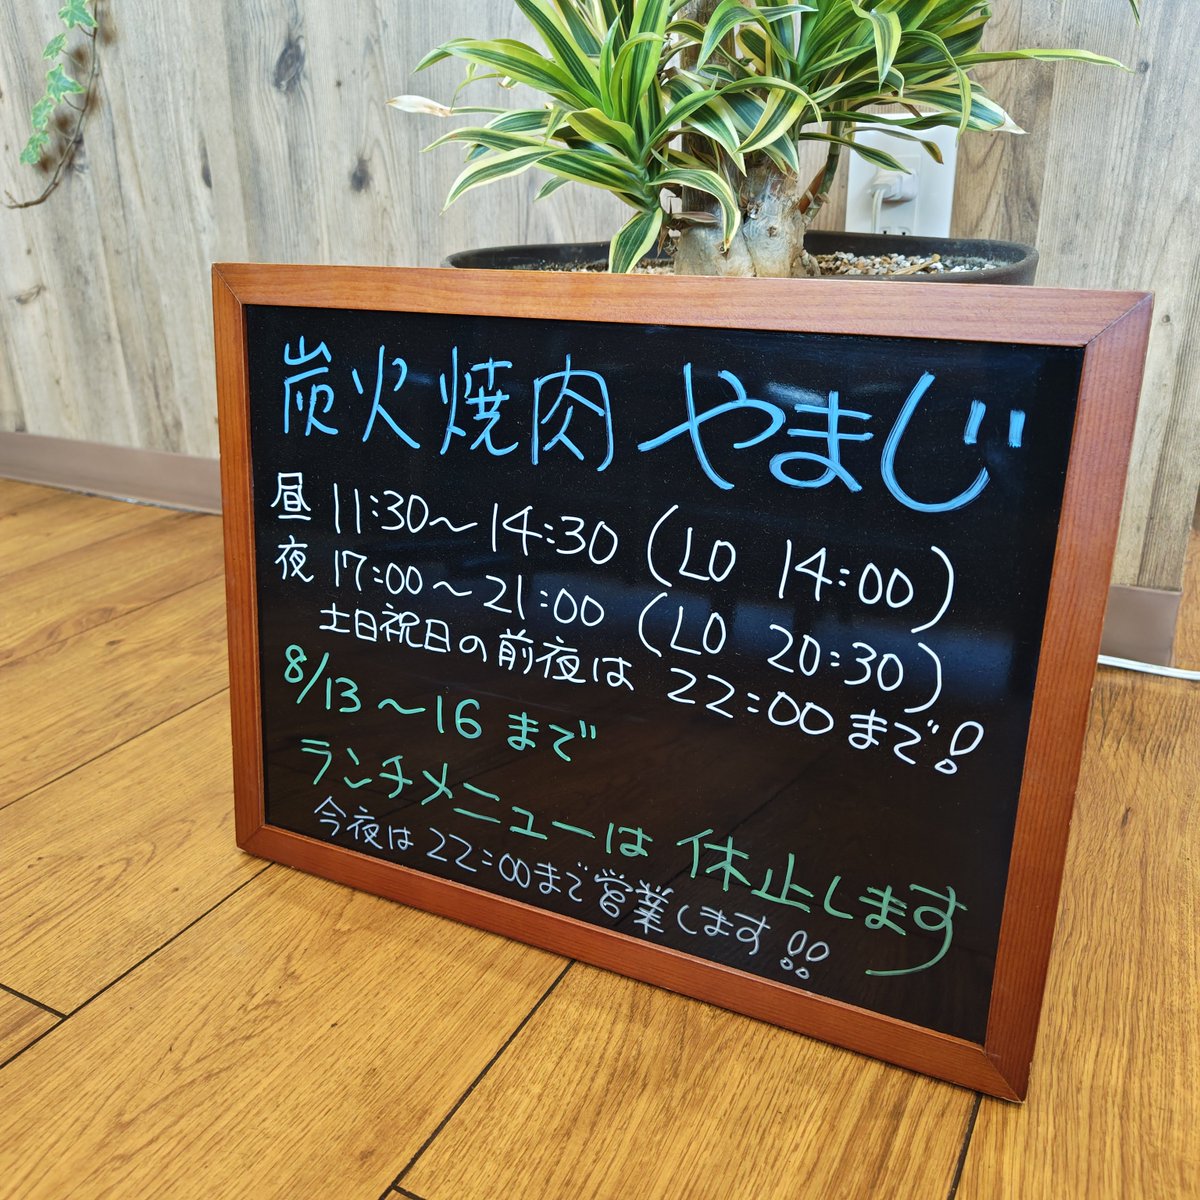 炭火焼肉 やまじ
昼 11:30〜14:30 (LO 14:00)
夜 17:00〜21:00 (LO 20:30)
土日祝日の前夜は 22:00まで!
8/13〜16 まで
ランチメニューは 休止します
今夜は 22:00まで営業します!!